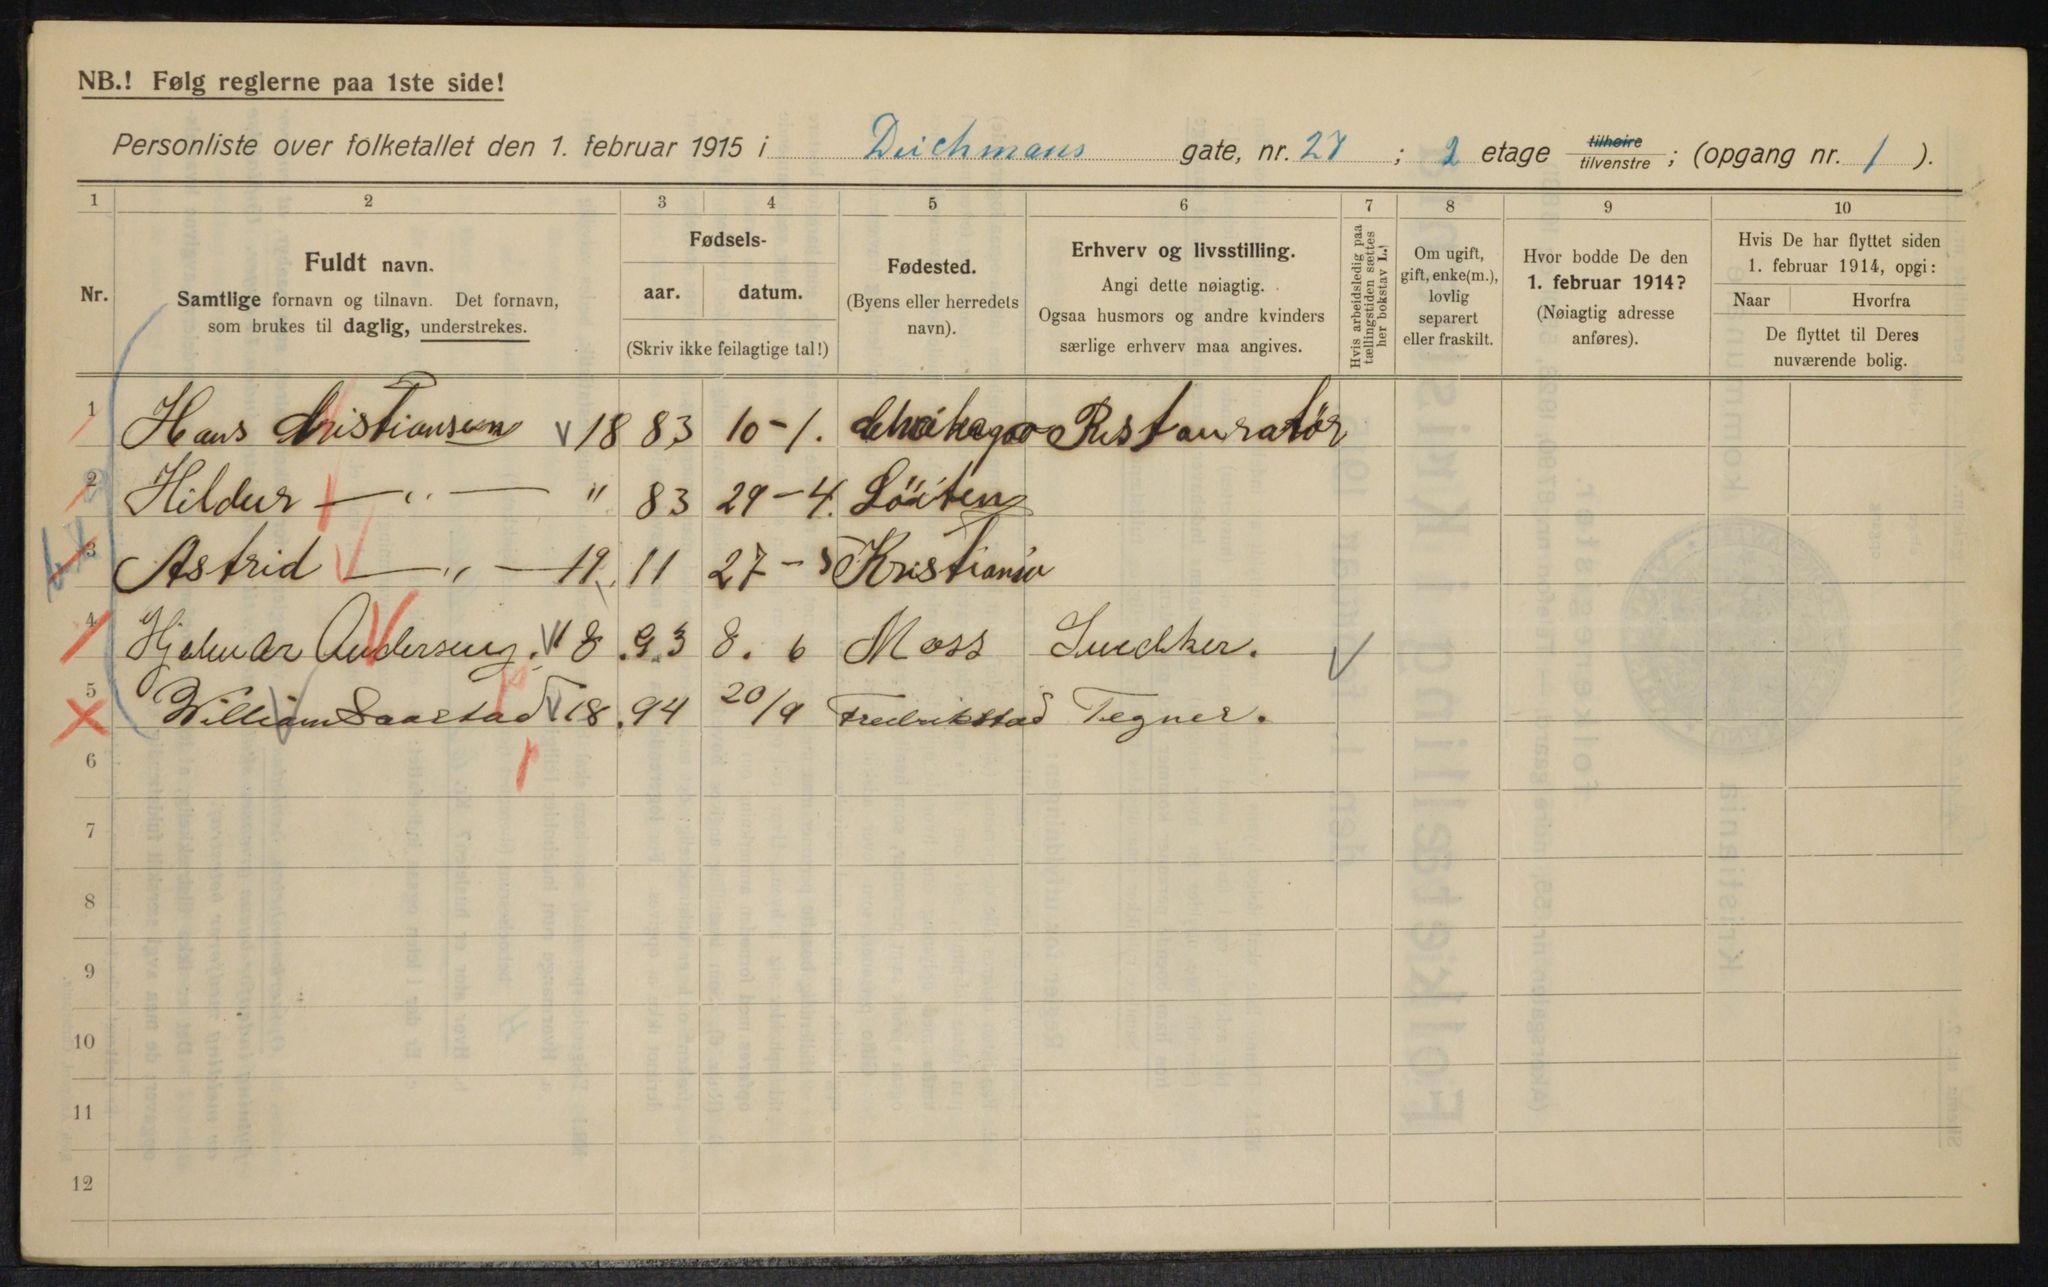 NB.! Følg reglerne paa 1ste side!
Personliste over folketallet den 1. februar 1915 i Deichmans gate, nr. 27 ; 2 etage tilhøire tilvenstre ; (opgang nr. 1 ).
1 2 3 4 5 6 7 8 9 10
Nr.
Fuldt navn.
Samtlige fornavn og tilnavn. Det fornavn,
som brukes til daglig, understrekes.
Fødsels-
aar. datum.
(Skriv ikke feilagtige tal!)
Fødested.
(Byens eller herredets
navn).
Erhverv og livsstilling.
Angi dette nøiagtig.
Ogsaa husmors og andre kvinders
særlige erhverv maa angives.
Hvis arbeidsledig paa
tællingstiden sættes
her bokstav L.!
Om ugift,
gift, enke(m.),
lovlig
separert
eller fraskilt.
Hvor bodde De den
1. februar 1914?
(Nøiagtig adresse
anføres).
Hvis De har flyttet siden
1. februar 1914, opgi:
Naar Hvorfra
De flyttet til Deres
nuværende bolig.
1 Hans Kristiansen 18 83 10-1. Restauratør
2 Hildur — „ — " 83 29-4. Löiten
3 Astrid — „ — 19 11 27- Kristiania
4 Hjalmar 18 93 8. 6 Moss Snedker.
5 William Saastad 18.94 20/9 Fredrikstad Tegner.
6
7
8
9
10
11
12